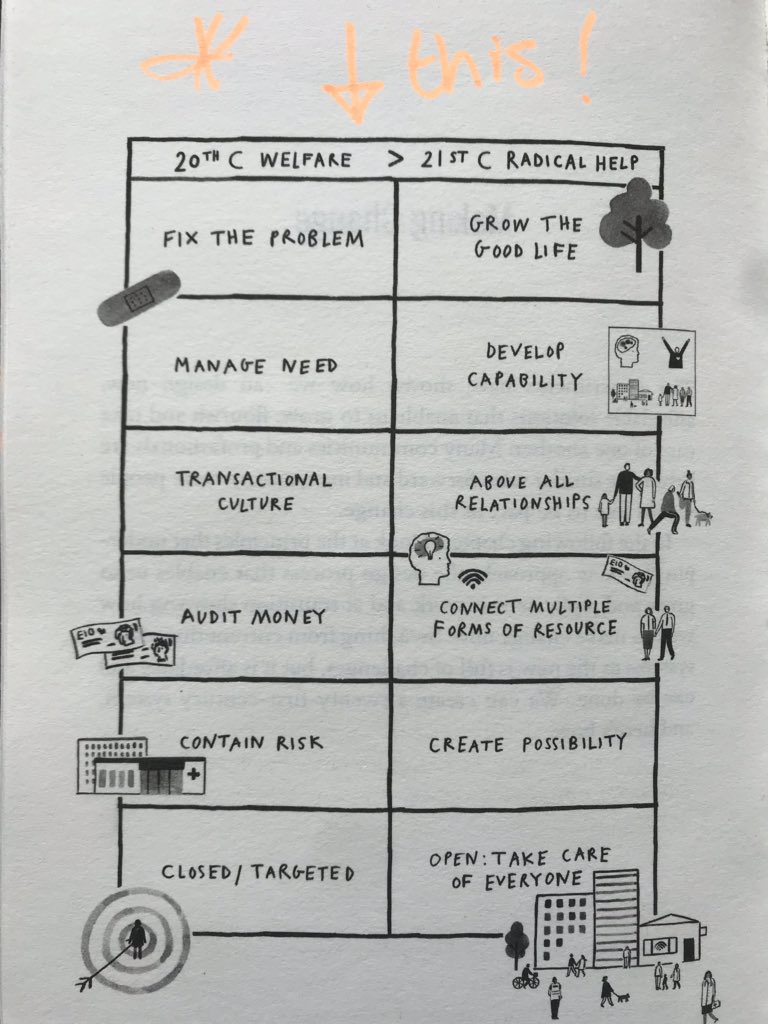 this!
20TH C WELFARE > 21ST C RADICAL HELP
FIX THE PROBLEM
GROW THE
GOOD LIFE
MANAGE NEED
DEVELOP
CAPABILITY
TRANSACTIONAL
CULTURE
ABOVE ALL
RELATIONSHIPS
AUDIT MONEY
£10
£10
CONNECT MULTIPLE
FORMS OF RESOURCE
CONTAIN RISK
CREATE POSSIBILITY
CLOSED/TARGETED
OPEN: TAKE CARE
OF EVERYONE